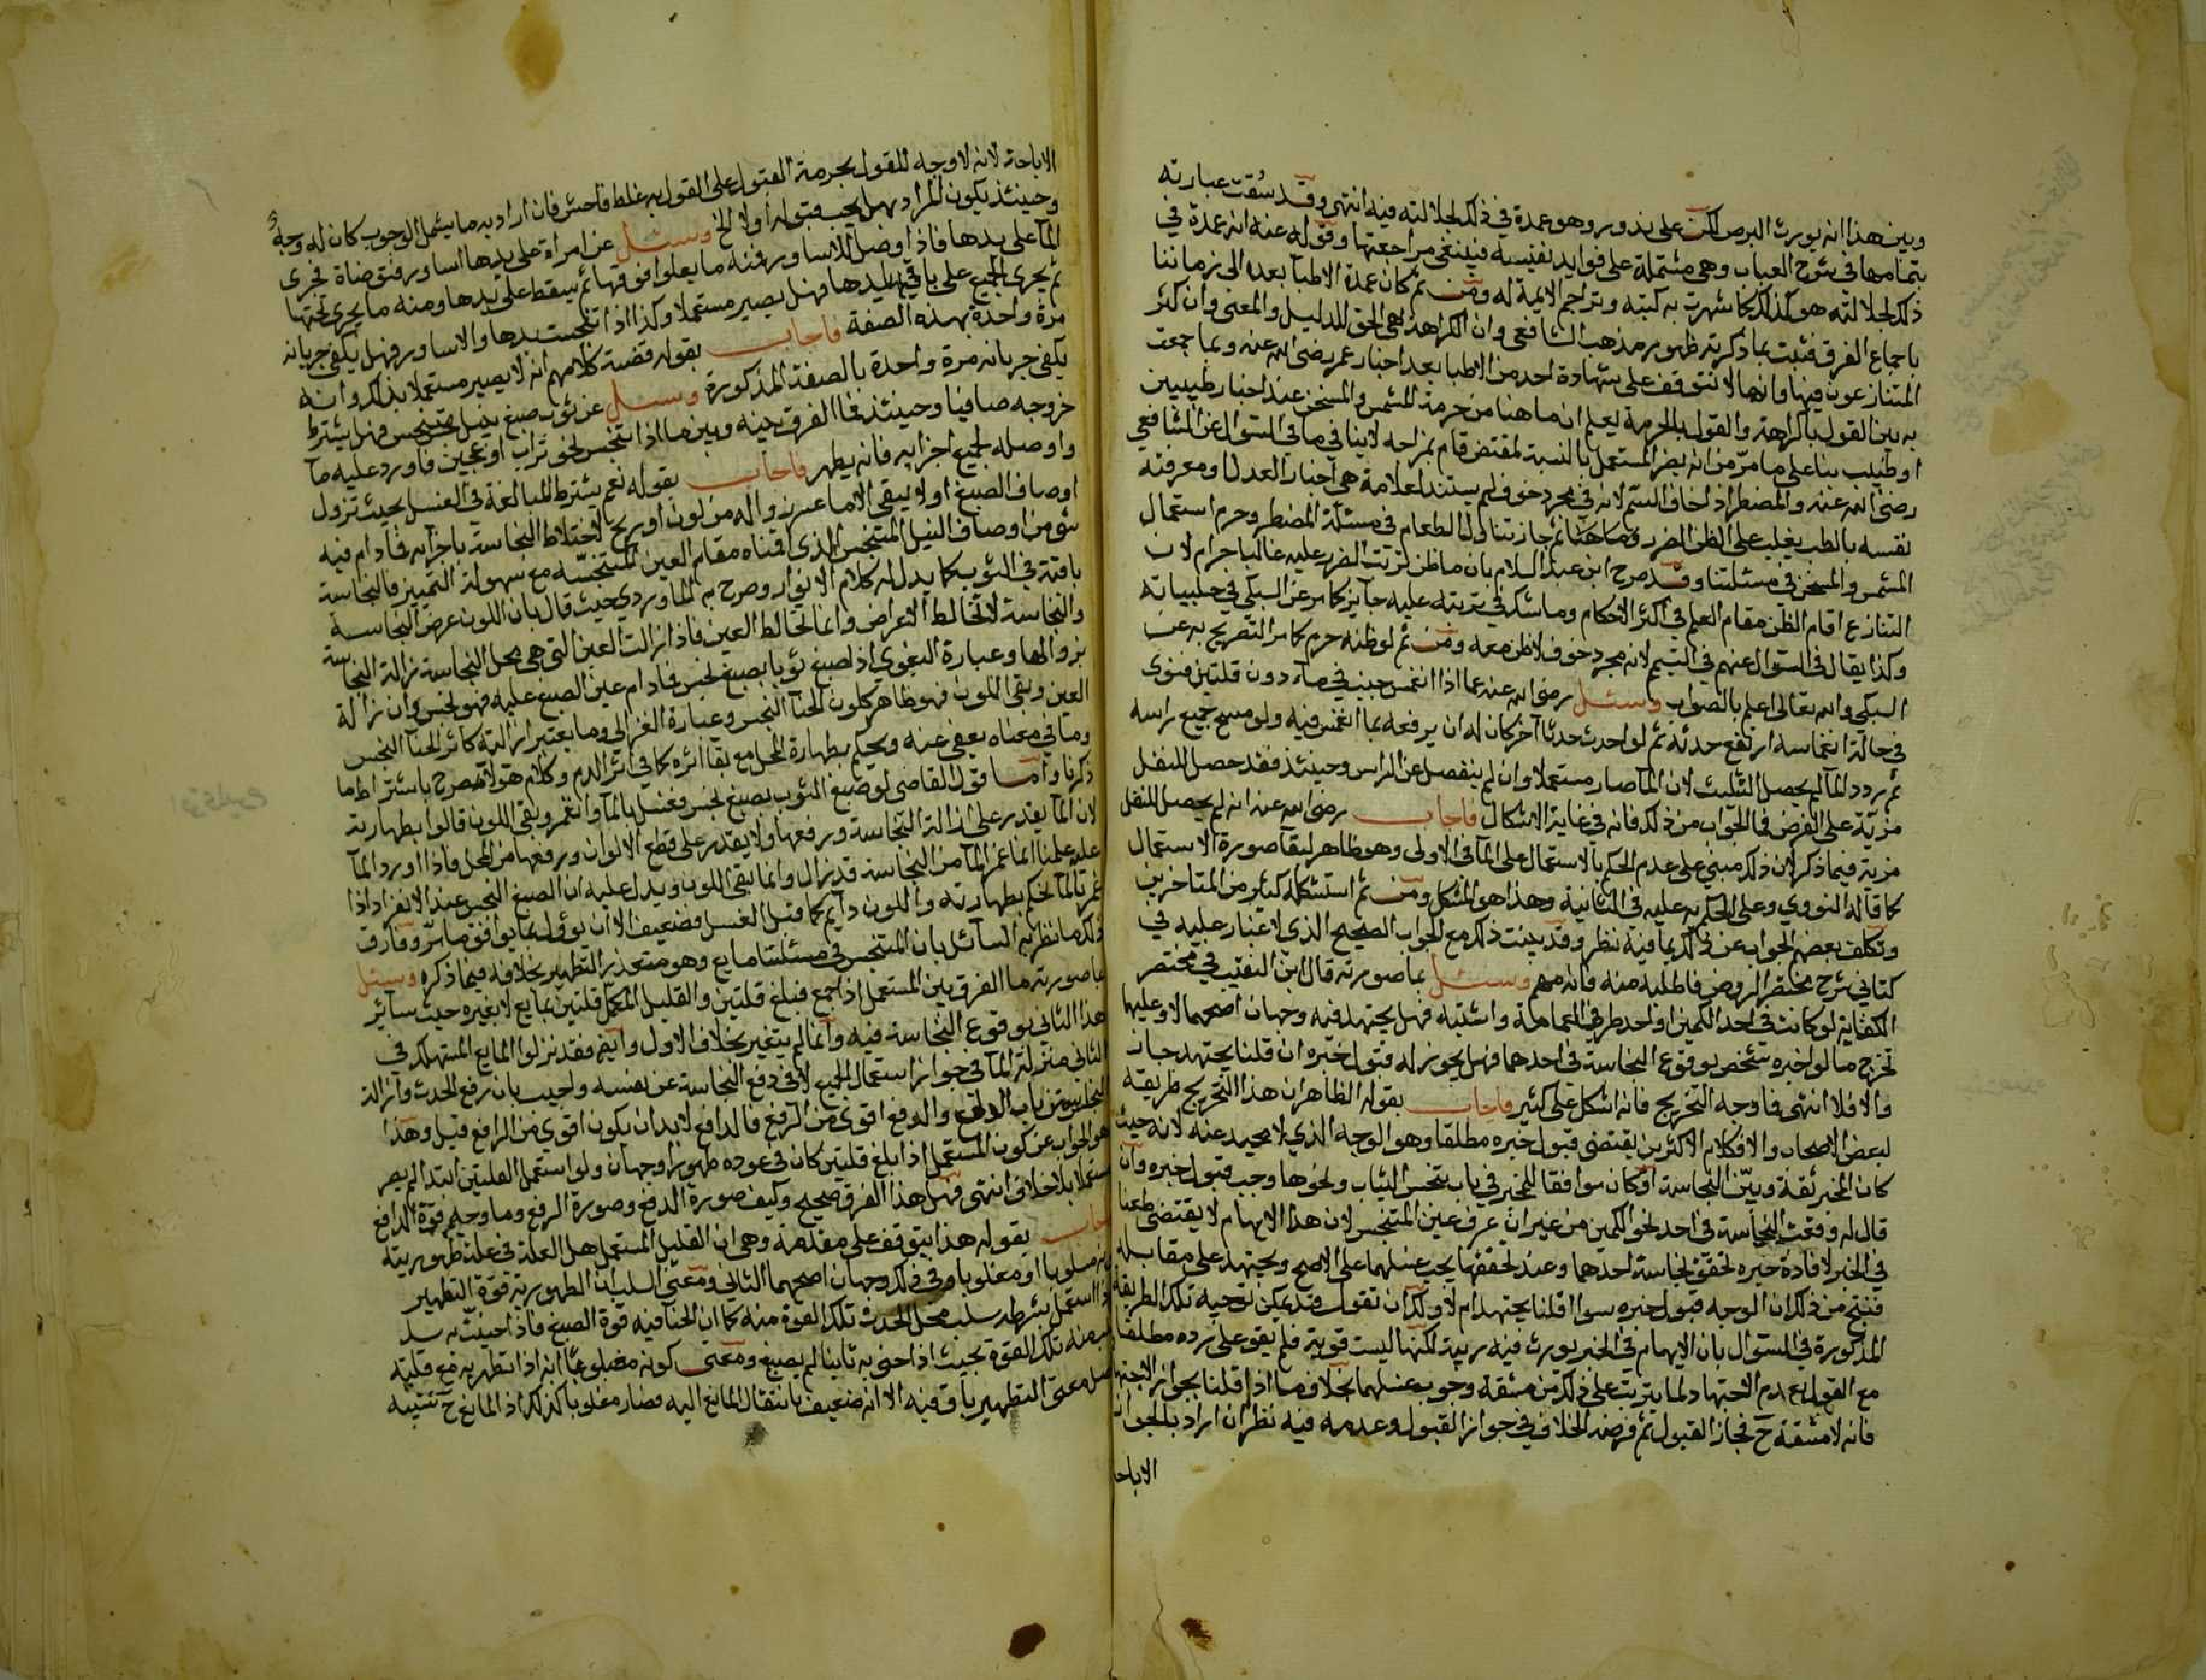 وبين هذا انه يورث البرص لكن على ندور وهو عمدة في ذلك لجلالته فيه انتهى وقد سُقت عبارته
بتمامها في شرح العباب وهي مشتملة على فوايد نفيسة فينبغي مراجعتها وقوله عنه انه عمدة في
ذلك لجلالته هو كذلك كما شهرت به كتبه وتراجم الايمة له ومن ثم كان عمدة الاطبآ بعده الى زماننا
باجماع الفرق فثبت بما ذكرته ظهور مذهب الشافعي وان الكراهة هي الحق للدليل والمعنى وان كثر
المتنازعون فيها وانها لا تتوقف على شهادة احد من الاطبا بعد اخبار عمر رضي الله عنه وبما جمعت
به بين القول بالكراهة والقول بالحرمة يعلم ان ما هنا من حرمة المشمس والمسخن عند اخبار طبيبين
او طبيب بنا على ما مر من انه يضر المستعمل بالنسبة لمقتض قام بمزاجه لا ينافي ما في السؤال عن الشافعي
رضي الله عنه والمضطر اذا خاف السم لانه في مجرد خوف لم يستند لعلامة هي اخبار العدل او معرفته
نفسه بالطب يغلب على الظن الضرر وما هنا ثم جاز تناول الطعام في مسئلة المضطر وحرم استعمال
المشمس والمسخن في مسئلتنا وقد صرح ابن عبد السلام بان ما ظن ترتب الضرر عليه غالبا حرام لان
التنازع اقام الظن مقام العلم في اكثر الاحكام وما شك في ترتبه عليه جآيز كما مر عن السبكي في حلبياته
وكذا يقال في السؤال عنهم في التيمم لانه مجرد خوف لا ظن معه ومن ثم لو ظنه حرم كما مر التصريح به عن
السبكي والله تعالى اعلم بالصواب وسئل رضي الله عنه عما اذا انغمس جنب في مآء دون قلتين فنوى
في حالة انغماسه ارتفع حدثه ثم لو احدث حدثا آخر كان له ان يرفعه بما انغمس فيه ولو مسح جميع راسه
ثم ردد المآ لم يحصل التثليث لان المآ صار مستعملا وان لم ينفصل عن الراس وحينئذ فقد حصل للنفل
مزيّة على الفرض فما الجواب من ذلك فانه في غاية الاشكال فاجاب رضي الله عنه انه لم يحصل للنفل
مزية فيما ذكر لان ذلك مبني على عدم الحكم بالاستعمال على المآ في الاولى وهو ظاهر لبقآ صورة الاستعمال
كما قاله النووي وعلى الحكم به عليه في الثانية وهذا هو المشكل ومن ثم استشكله كثير من المتاخرين
وتكلف بعضهم الجواب عن ذلك بما فيه نظر وقد بينت ذلك مع الجواب الصحيح الذي لا غبار عليه في
كتابي شرح مختصر الروض فاطلبه منه فانه مهم وسئل بما صورته قال ابن النقيب في مختصر
الكفاية لو كانت في احد الكمين او احد طرفي العمامة واشتبه فهل يجتهد فيه وجهان اصحهما لا وعليها
تخرج ما لو اخبره شخص بوقوع النجاسة في احدهما فهل يجوز له قبول خبره ان قلنا يجتهد جاز
والا فلا انتهى فما وجه التخريج فانه اشكل على كثير فاجاب بقوله الظاهر ان هذا التخريج طريقة
لبعض الاصحاب والا فكلام الاكثرين يقتضي قبول خبره مطلقا وهو الوجه الذي لا محيد عنه لانه حيث
كان المخبر ثقة وبيّن النجاسة او كان موافقا للمخبر في باب تنجس الثياب ونحوها وجب قبول خبره وان
قال له وقعت النجاسة في احد نحو الكمين من غير ان عرف عين المتنجس لان هذا الابهام لا يقتضي طعنا
في الخبر لافادة خبره تحقق نجاسة احدهما وعند تحققها يجب غسلهما على الاصح ويجتهد على مقابله
فنتج من ذلك ان الوجه قبول خبره سوا اقلنا يجتهد ام لا ولك ان تقول قد يمكن توجيه تلك الطريقة
المذكورة في السؤال بان الابهام في الخبر يورث فيه ريبة لكنها ليست قوية فلم يقو على رده مطلقا
مع القول بعدم الاجتهاد لما يترتب على ذلك من مشقة وجوب غسلهما بخلاف ما اذا قلنا بجواز الاجتهاد
فانه لا مشقة ح فجاز القبول ثم فرضه الخلاف في جواز القبول وعدمه فيه نظر ان اراد بالجواز
الاباحة
الاباحة لانه لا وجه للقول بحرمة القبول على القول به غلط فاحش فان اراد به ما يشمل الوجوب كان له وجه
وحينئذ يكون المراد بهل يجب قبوله أو لا الخ وسئل عن امراة على يدها اساور فتوضاة فجرى
المآ على يدها فاذا وصل للاساور فمنه ما يعلوا فوقها ثم يسقط على يدها ومنه ما يجري تحتها
ثم يجرى الجميع على باقي اليدها فهل يصير مستعملا وكذا اذا تنجست يدها والاساور فهل يكفي جريانه
مرة واحدة بهذه الصفة فاجاب بقوله قضية كلامهم انه لا يصير مستعملا بذلك وانه
يكفي جريانه مرة واحدة بالصفة المذكورة وسئل عن ثوب صبغ بنيل متنجس فهل يشترط
خروجه صافيا وحينئذ فما الفرق بينه وبين ما اذا تنجس نحو تراب او عجين فاورد عليه مآ
واوصله لجميع اجزايه فانه يطهر فاجاب بقوله نعم يشترط المبالغة في الغسل بحيث تزول
اوصاف الصبغ او لا يبقى الا ما عسر زواله من لون او ريح لاختلاط النجاسة باجزآيه فما دام فيه
شي من اوصاف النيل المتنجس الذي اقمناه مقام العين المتنجسه مع سهولة التمييز فالنجاسة
باقية في الثوب كما يدل له كلام الانوار وصرح به الماوردي حيث قال بان اللون عرض النجاسة
والنجاسة لا تخالط الاعراض وانما تخالط العين فاذا زالت العين التي هي محل النجاسة زالت النجاسة
بزوالها وعبارة البغوي اذا صبغ ثوبا بصبغ نجس فما دام عين الصبغ عليه فهو نجس وان زالة
العين وبقي اللون فهو ظاهر كلون الحنآ النجس وعبارة الغزالي وما يعتبر ازالته كاثر الحنآ النجس
وما في معناه يعفى عنه ويحكم بطهارة المحل مع بقآ اثره كما في اثر الدم وكلام هولاء مصرح باشتراط ما
ذكرنا وأما قول القاضي لو صبغ الثوب بصبغ نجس فغسل بالمآ وانغمر وبقي اللون قالوا بطهارته
لان المآ يقدر على ازالة النجاسة ورفعها ولا يقدر على قطع الالوان ورفعها من المحل فاذا اورد المآ
عليه علمنا انما غمر المآ من النجاسة قد زال وانما بقي اللون ويدل عليه ان الصبغ النجس عند الانفراد اذا
غمر بالمآ نحكم بطهارته واللون دآيم كما قبل الغسل فضعيف الا ان يوؤل بما يوافق ما مرّ وفارق
ذلك ما نظر به السآئل بان المتنجس في مسئلتنا مايع وهو متعذر التطهير بخلافه فيما ذكره وسئل
بما صورته ما الفرق بين المستعمل اذا جمع فبلغ قلتين والقليل المكمل قلتين بمايع لا يغيره حيث سآئر
هذا الثاني بوقوع النجاسة فيه وانما لم يتغير بخلاف الاول وايضا فقد نزلوا المايع المستهلك في
الثاني منزلة المآ في جواز استعمال الجميع لا في دفع النجاسة عن نفسه واجيب بان رفع الحدث وازالة
النجاسة من باب الدفع والدفع اقوى من الرفع فالدافع لا بدان يكون اقوى من الرافع قيل وهذا
هو الجواب عن كون المستعمل اذا بلغ قلتين كان في عوده طهورا وجهان ولو استعمل القلتين ابتدا لم يصر
مستعملا بلا خلاف انتهى فهل هذا الفرق صحيح وكيف صورة الدفع وصورة الرفع وما وجه قوة الدافع
فاجاب بقوله هذا يتوقف على مقدمة وهي ان القليل المستعمل هل العلة في علة طهوريته
كونه مسلوبا او مغلوبا وفي ذلك وجهان اصحهما الثاني ومعنى السلب ان الطهورية قوة التطهير
فاذا استعمل بشرطه سلب محل الحدث تلك القوة منه كما ان الحنا فيه قوة الصبغ فاذا حنيت به سلب
منه تلك القوة بحيث اذا حنى به ثانيا لم يصبغ ومعنى كونه مغلوبا انه اذا تطهر به مع قلته
فمعنى التطهير باق فيه الا انه ضعيف بانتقال المانع اليه فصار مغلوبا كذلك اذ المايع ح تشبه